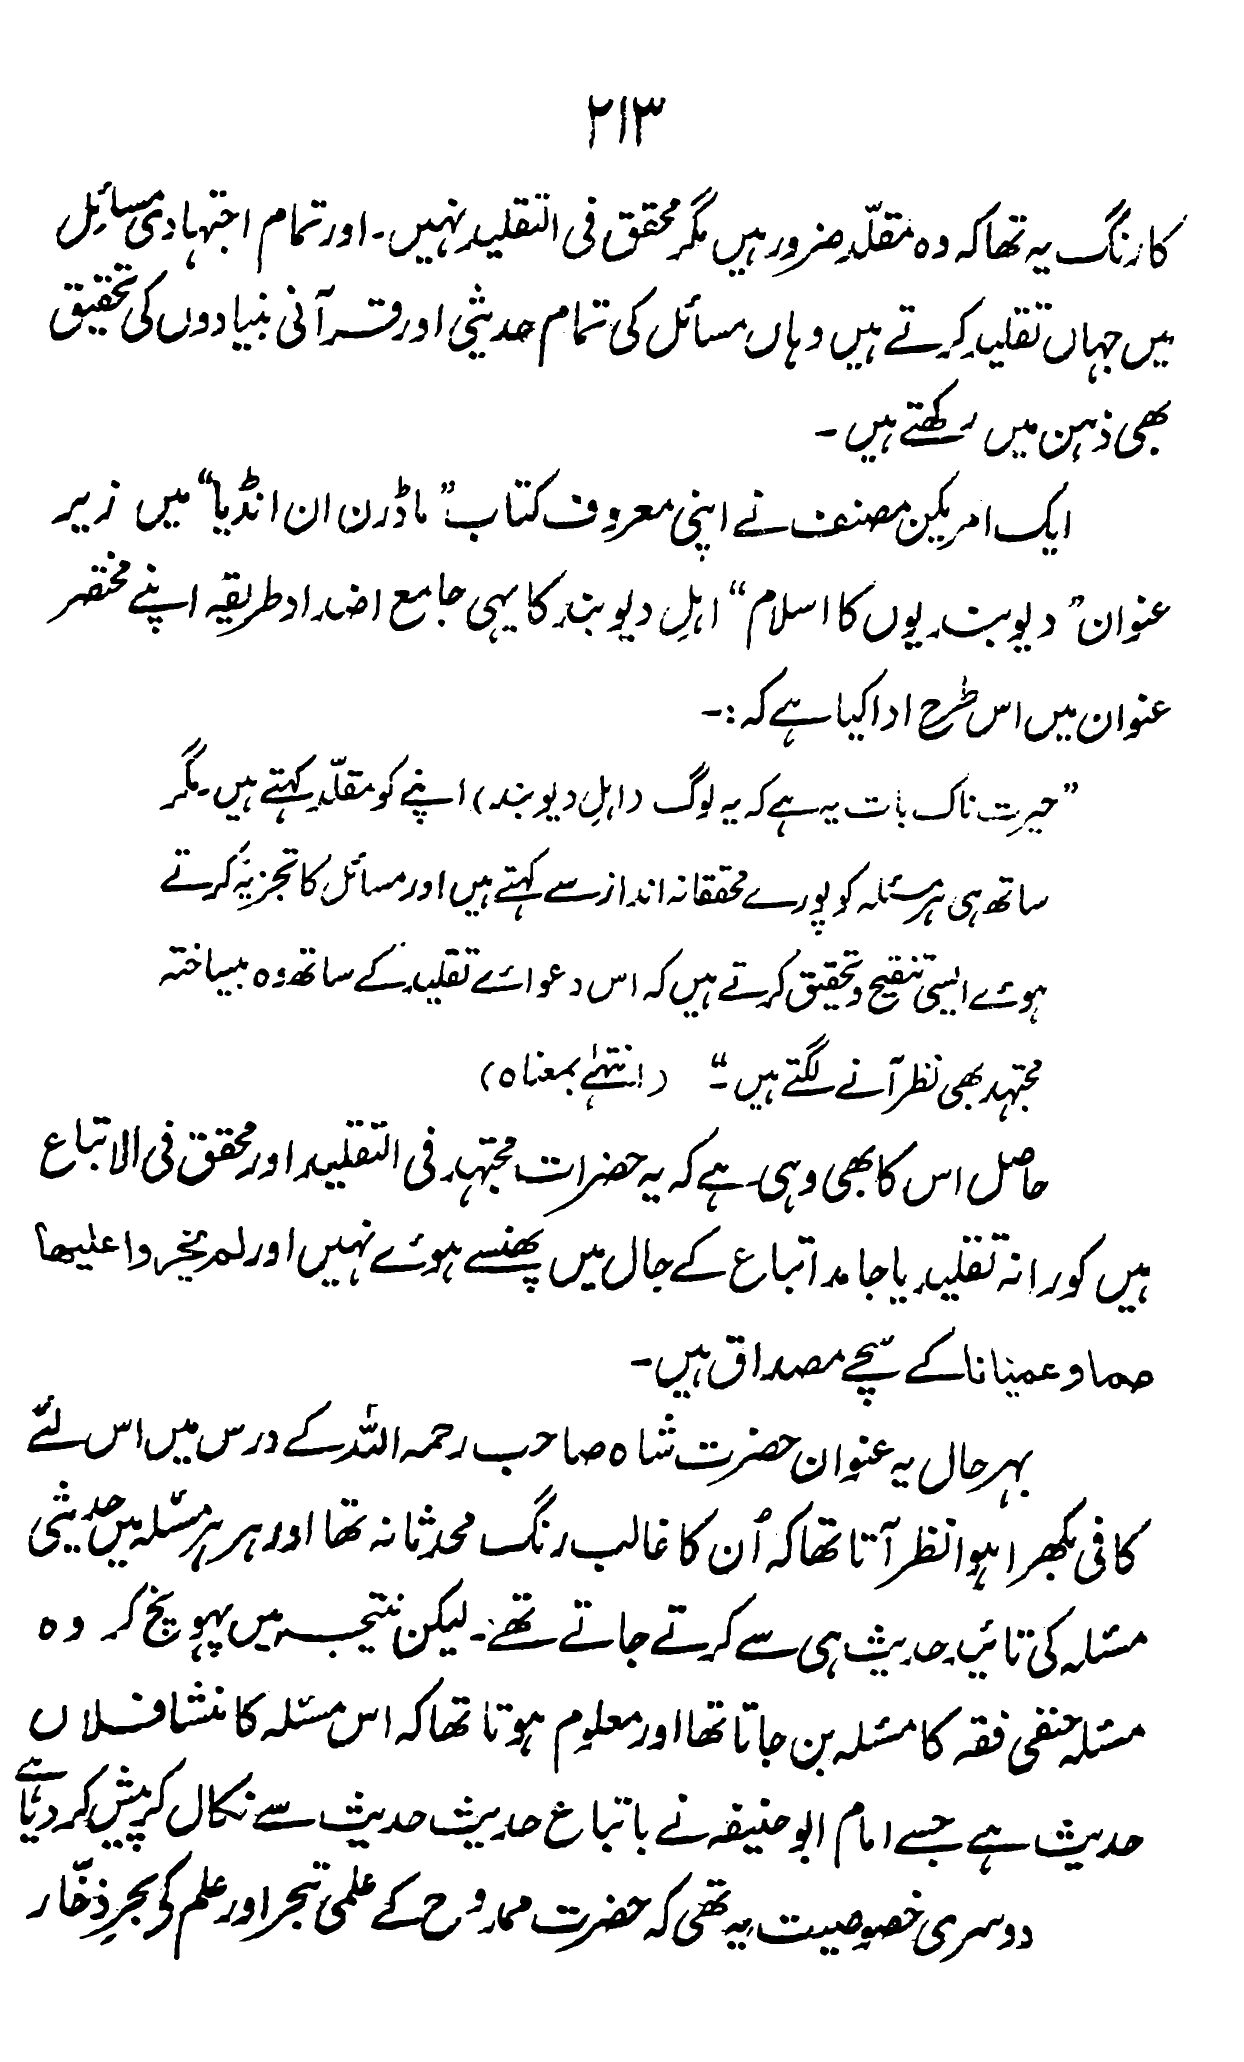 ۲۱۳
کا رنگ یہ تھا کہ وہ مقلّد ضرور ہیں مگر محقق فی التقلید نہیں۔ اور تمام اجتہادی مسائل
میں جہاں تقلید کرتے ہیں وہاں مسائل کی تمام حدیثی اور قرآنی بنیادوں کی تحقیق
بھی ذہن میں رکھتے ہیں۔
ایک امریکن مصنف نے اپنی معروف کتاب ”ماڈرن ان انڈیا“ میں زیر
عنوان ”دیوبندیوں کا اسلام“ اہلِ دیوبند کا یہی جامع اضداد طریقہ اپنے مختصر
عنوان میں اس طرح ادا کیا ہے کہ:۔
”حیرت ناک بات یہ ہے کہ یہ لوگ (اہلِ دیوبند) اپنے کو مقلّد کہتے ہیں۔ مگر
ساتھ ہی ہر مسئلہ کو پورے محققانہ انداز سے کہتے ہیں اور مسائل کا تجزیہ کرتے
ہوئے ایسی تنقیح و تحقیق کرتے ہیں کہ اس دعوائے تقلید کے ساتھ وہ بیساختہ
مجتہد بھی نظر آنے لگتے ہیں۔“ (انتہیٰ بمعناہ)
حاصل اس کا بھی وہی ہے کہ یہ حضرات مجتہد فی التقلید اور محقق فی الاتباع
ہیں کورانہ تقلید یا جامد اتباع کے جال میں پھنسے ہوئے نہیں اور لم یخروا علیھا
صما و عمیانا کے سچّے مصداق ہیں۔
بہرحال یہ عنوان حضرت شاہ صاحب رحمہ اللہ کے درس میں اس لئے
کافی نکھرا ہوا نظر آتا تھا کہ اُن کا غالب رنگ محدثانہ تھا اور ہر ہر مسئلہ میں حدیثی
مسئلہ کی تائید حدیث ہی سے کرتے جاتے تھے۔ لیکن نتیجہ میں پہونچ کر وہ
مسئلہ حنفی فقہ کا مسئلہ بن جاتا تھا اور معلوم ہوتا تھا کہ اس مسئلہ کا منشا فلاں
حدیث ہے جسے امام ابو حنیفہ نے باتباع حدیث حدیث سے نکال کر پیش کر دیا ہے
دوسری خصوصیت یہ تھی کہ حضرت ممدوح کے علمی تبحر اور علم کی بحرِ ذخّار